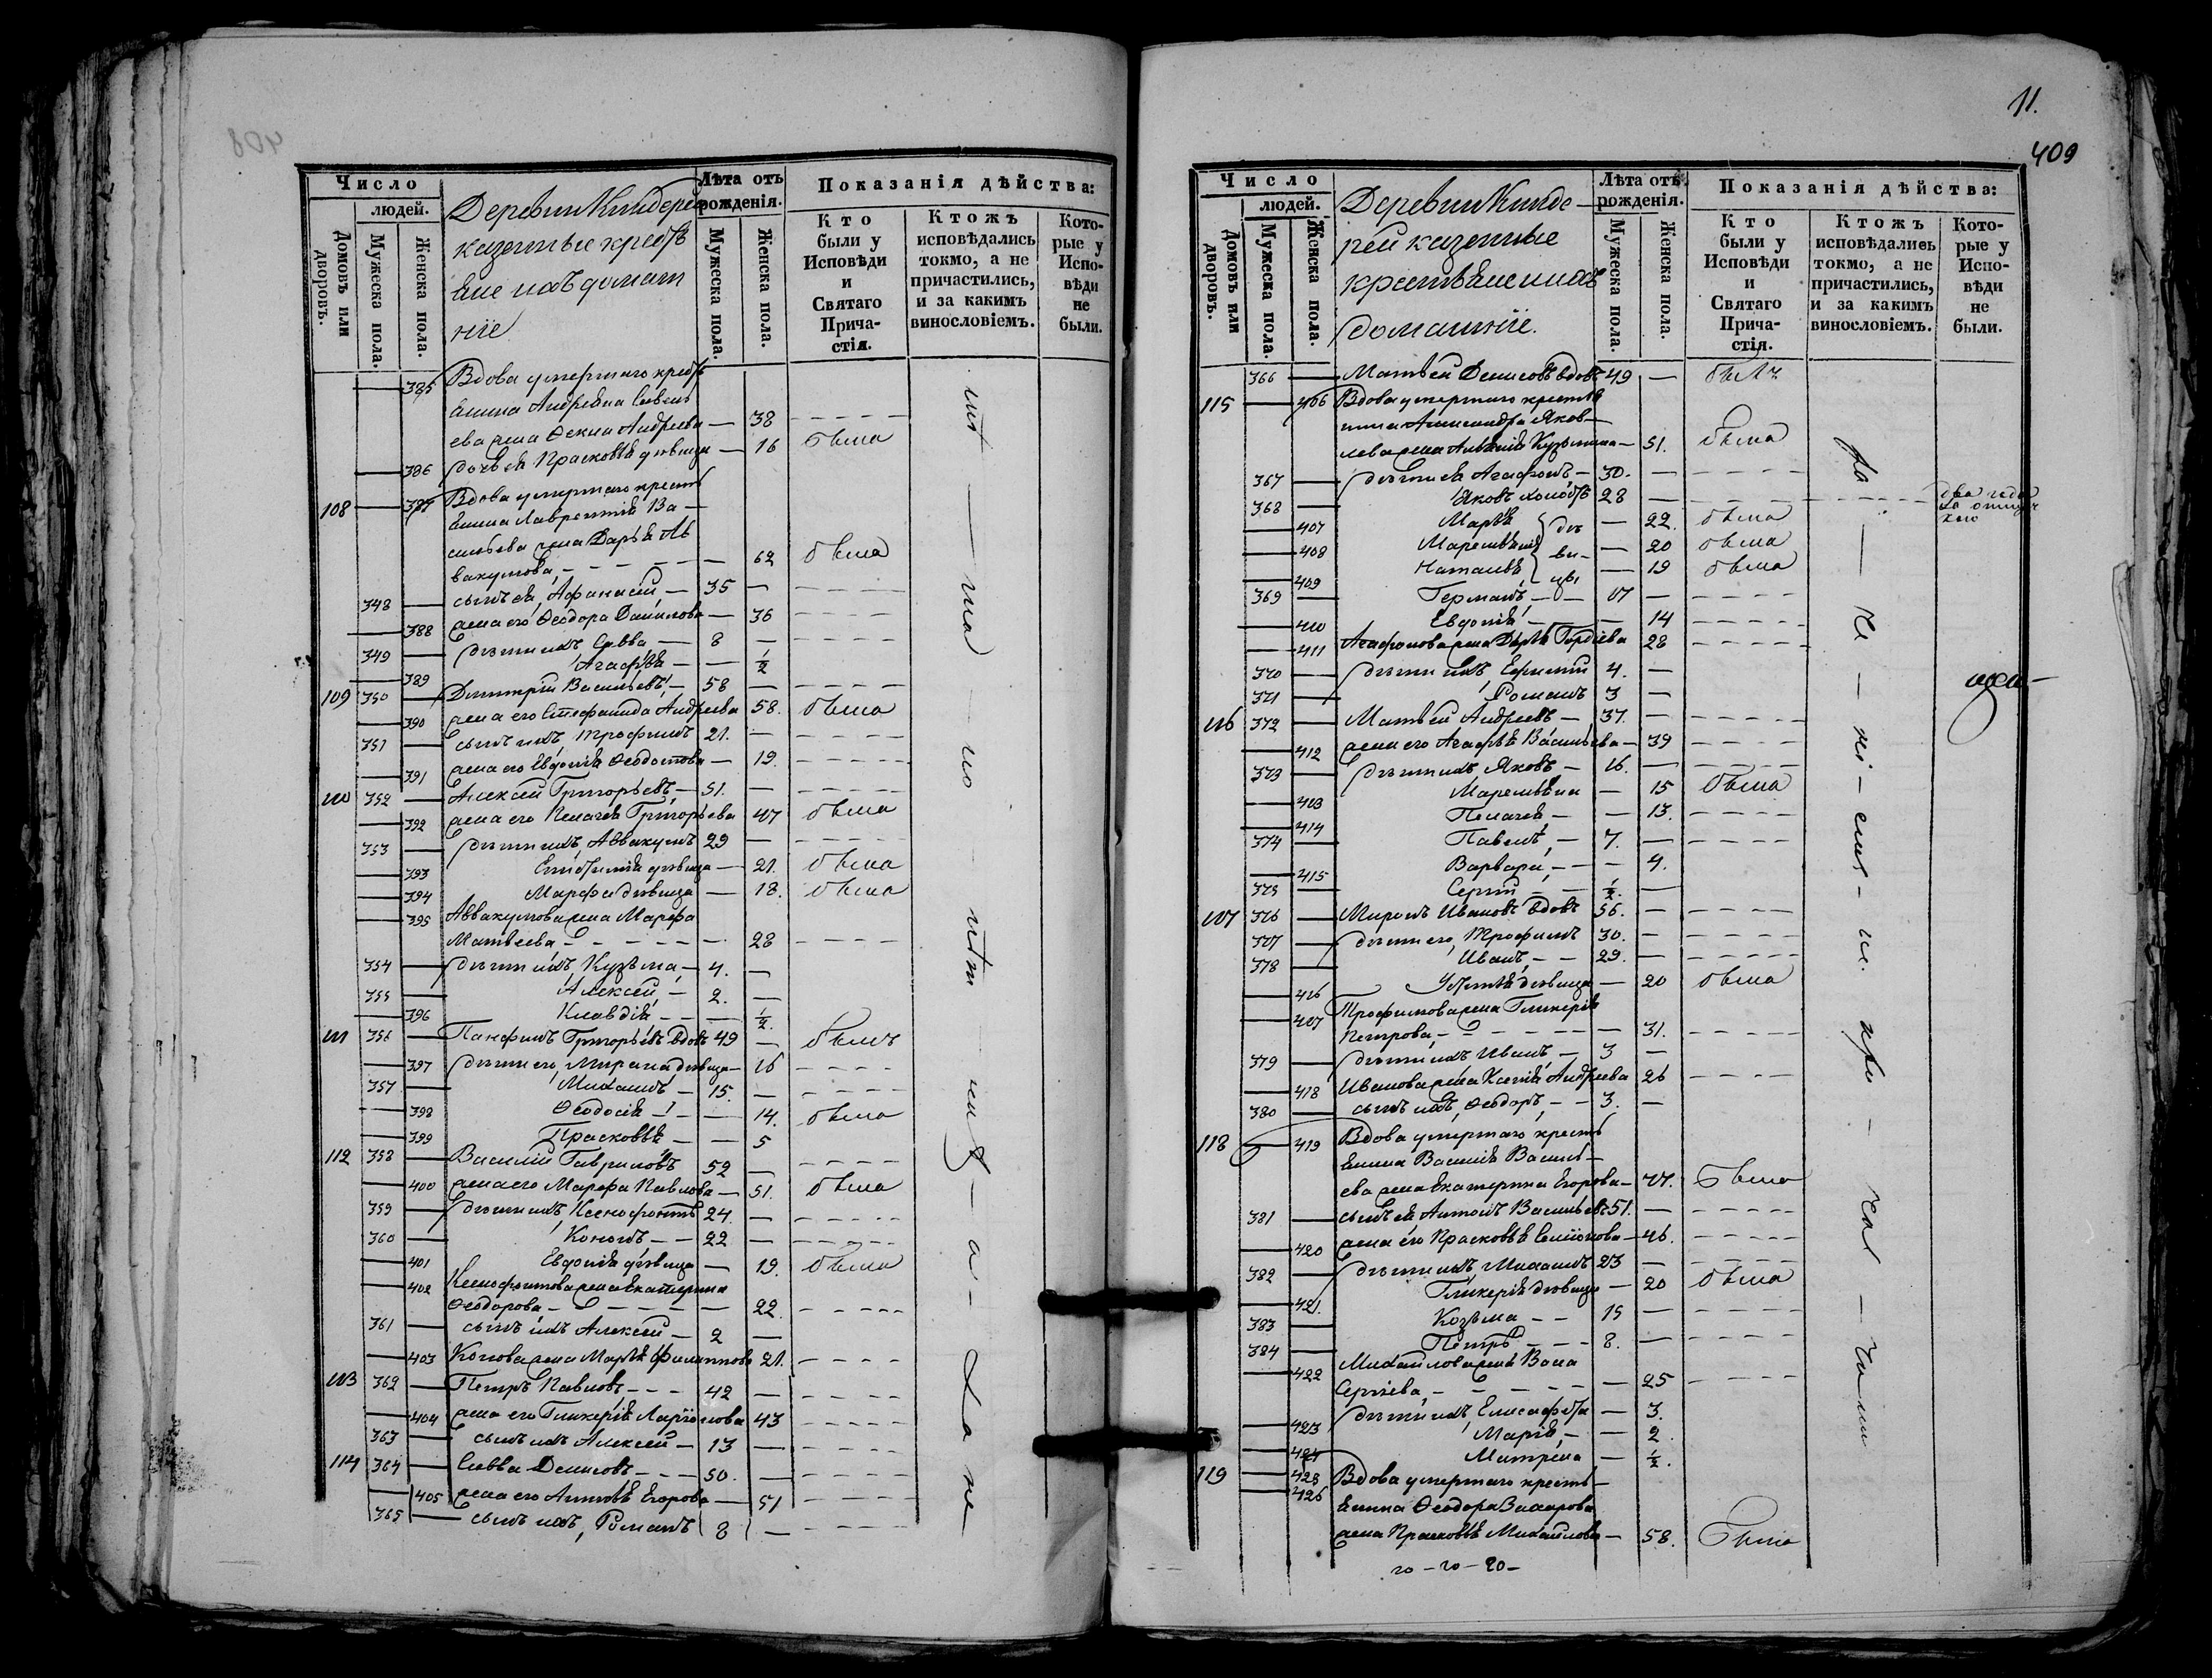 Число
людей.
Домовъ или дворовъ.
Мужеска пола.
Женска пола.
Деревни Киндерей
казенные крестъ
яне ихъ домаш
ніе
Лѣта отъ рожденія.
Мужеска пола.
Женска пола.
Показанія дѣйства:
Кто были у Исповѣди и Святаго Прича-стія.
Ктожъ исповѣдались токмо, а не причастились, и за какимъ винословіемъ.
Кото-рые у Испо-вѣди не были.
385 Вдова умершаго кресть
янина Андреяна Савель
ева жена Ѳекла Андреева — 38
386 дочь ея Прасковья дѣвица — 16 была
108 387 Вдова умершаго кресть
янина Лаврентія Ва-
сильева жена Дарья Ав
вакумова — 62 была
348 сынъ ея, Афанасій, — 35 —
388 жена его Ѳеодора Данилова — 36
349 дѣти ихъ Савва — 8 —
389 Агафья — — ½
109 350 Дмитрій Васильевъ, — 58 —
390 жена его Стефанида Андреева 58. была
351 сынъ ихъ, Трофимъ 21. —
391 жена его Евдокія Ѳеодотова — 19.
110 352 Алексей Григорьевъ — 51. —
392 жена его Пелагея Григорьева 47 была
353 дѣти ихъ, Аввакумъ 29 —
393 дѣвица — 21. была
394 Марфа дѣвица — 18. была
395 Аввакумова жена Марфа
Матвеева — 28
354 дѣти ихъ, Кузьма, — 4. —
355 Алексей, — 2. —
396 Клавдія — — ½.
111 356 Панфилъ Григорьевъ вдовъ 49 — былъ
397 дѣти его, дѣвица — 16
357 Михаилъ — 15. —
398 Ѳеодосія — — 14. была
399 Прасковья — — 5
112 358 Василій Гавриловъ 52 —
400 жена его Марфа Павлова — 51. была
359 дѣти ихъ, Ксенофонтъ 24. —
360 Кононъ — 22 —
401 Евдокія дѣвица — 19. была
402 Ксенофонтова жена Екатерина
Ѳеодорова — 22
361 сынъ ихъ Алексей — 2 —
403 Конова жена Марья Филиппова 21.
113 362 Петръ Павловъ — 42 —
404 жена его Гликерія Ларіонова 43
363 сынъ ихъ Алексей — 13 —
114 364 Савва Денисовъ — 50. —
405 жена его Егорова — 51
365 сынъ ихъ, Романъ 8 —
11.
409
Число
людей.
Домовъ или дворовъ.
Мужеска пола.
Женска пола.
Деревни Кинде-
рей казенные
крестьяне ихъ
домашніе.
Лѣта отъ рожденія.
Мужеска пола.
Женска пола.
Показанія дѣйства:
Кто были у Исповѣди и Святаго Прича-стія.
Ктожъ исповѣдались токмо, а не причастились, и за какимъ винословіемъ.
Кото-рые у Испо-вѣди не были.
366 Матвей Денисовъ вдовъ 49 — былъ
115 406 Вдова умершаго крестья
нина Александра Яков-
лева жена Кузьмина — 51. была
367 дѣти ея Агафонъ — 30. —
368 Яковъ холостъ 28 —
407 Марья — 22. была
408 — 20 была
409 Наталья — 19 была
дѣ
ви-
цы
369 Германъ, — 17 —
410 Евдокія — — 14
411 Агафонова жена Дарья Гордѣева 28
370 дѣти ихъ, Ефимій 4. —
371 Романъ 3 —
116 372 Матвей Андреевъ — 37. —
412 жена его Агафья Васильева — 39
373 дѣти ихъ, Яковъ — 16. —
413 — 15 была
414 Пелагея — — 13.
374 Павелъ, — 7. —
415 Варвара, — — 4.
375 Сергій — ½. —
117 376 Миронъ Ивановъ вдовъ 56. —
377 дѣти его, Трофимъ 30. —
378 Иванъ, — 29. —
416 дѣвица — 20 была
417 Трофимова жена Гликерія
Петрова, — 31.
379 дѣти ихъ Иванъ, — 3 —
418 Иванова жена Ксенія Андреева 26
380 сынъ ихъ, Ѳеодоръ, — 3. —
118 419 Вдова умершаго кресть
янина Василія Василь-
ева жена Екатерина Егорова — 77. была
381 сынъ ея Антонъ Васильевъ 51. —
420 жена его Прасковья Семіонова — 46.
382 дѣти ихъ Михаилъ 23 —
421. Гликерія дѣвица — 20 была
383 Козьма — 15 —
384 Петръ — 8. —
422 Михайлова жена Васа
Сергіева, — 25
423 дѣти ихъ, Елисафета — 3.
424 Марія, — — 2.
425 Матрена — ½.
119 426 Вдова умершаго кресть-
янина Ѳеодора Захарова
жена Прасковья Михайлова — 58. была
20 — 20 — 20 —